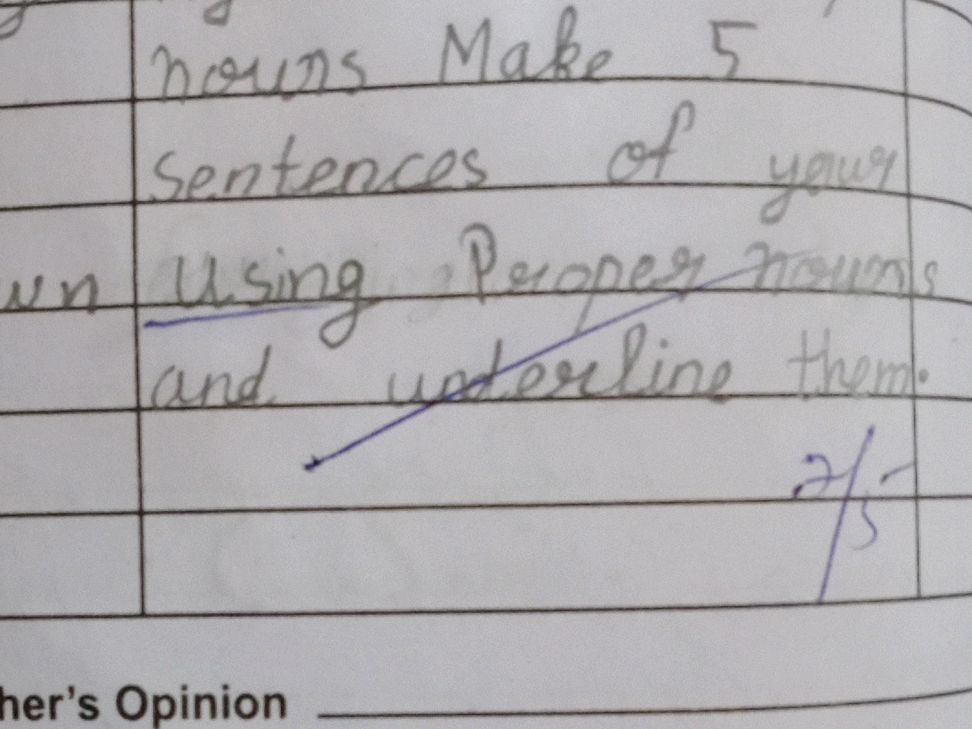 nouns Make 5
sentences of your
wn Using Proper nouns
and underline them.
2/5
her's Opinion